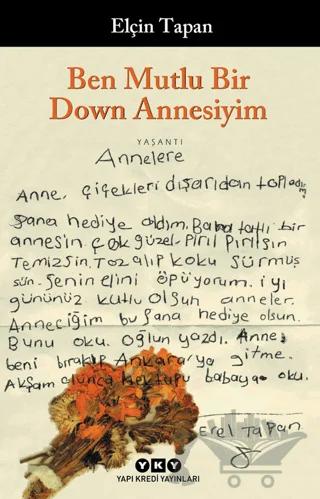 Elçin Tapan
Ben Mutlu Bir
Down Annesiyim
YAŞANTI
Annelere
Anne, çiçekleri dışarıdan topladım
sana hediye aldım. Bana tatlı bir
annesin. çok güzel. Pırıl Pırılsın
Temizsin. Toz alıp koku sürmüş
sün. Senin elini öpüyorum. iyi
gününüz kutlu olsun anneler.
Anneciğim bu sana hediye olsun.
Bunu oku. Oğlun yazdı. Anne
beni bırakıp Ankara'ya gitme.
Akşam olunca mektubu babaya oku.
Erel Tapan
YKY
YAPI KREDİ YAYINLARI